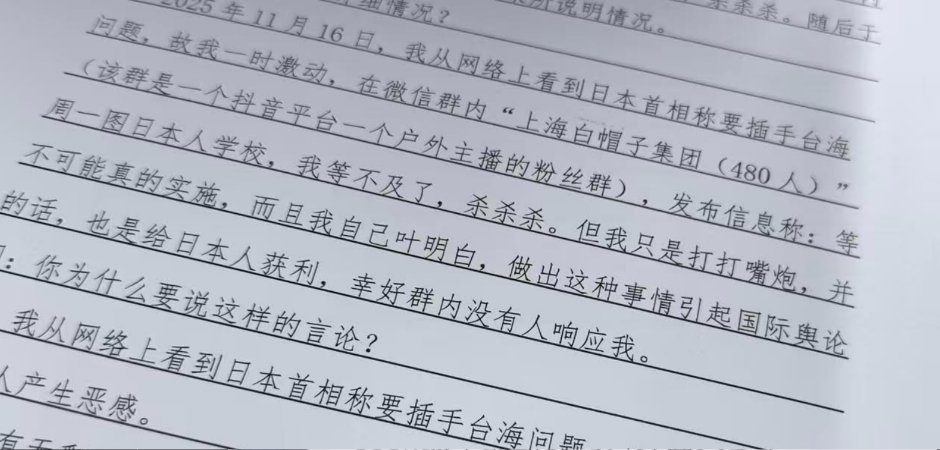 细情况？
说明情况。
杀杀杀。随后于
2025 年 11 月 16 日，我从网络上看到日本首相称要插手台海
问题，故我一时激动，在微信群内“上海白帽子集团（480 人）”
（该群是一个抖音平台一个户外主播的粉丝群），发布信息称：等
周一图日本人学校，我等不及了，杀杀杀。但我只是打打嘴炮，并
不可能真的实施，而且我自己叶明白，做出这种事情引起国际舆论
的话，也是给日本人获利，幸好群内没有人响应我。
：你为什么要说这样的言论？
我从网络上看到日本首相称要插手台海问题
人产生恶感。